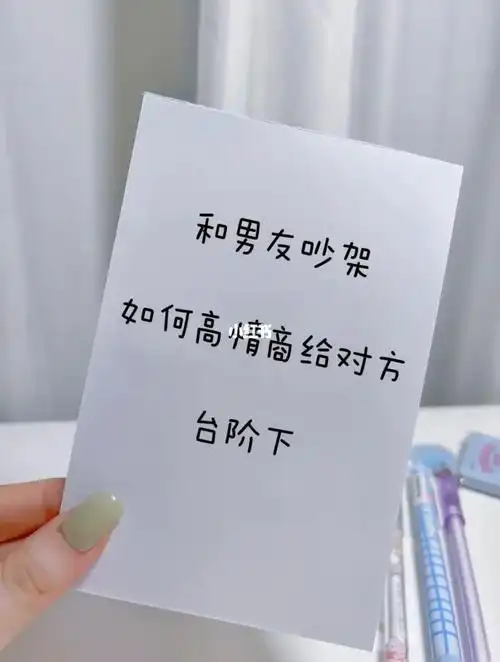 和男友吵架
如何高情商给对方
小红书
台阶下